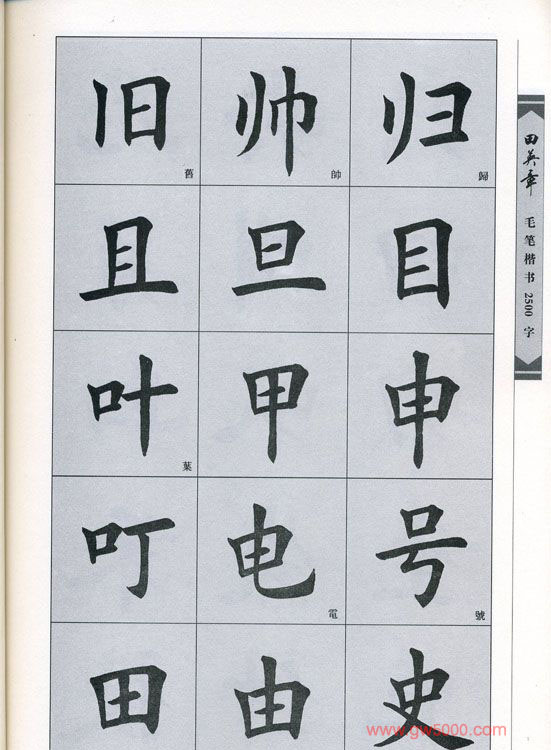 旧 帅 归
舊 帥 歸
且 旦 目
叶 甲 申
葉
叮 电 号
電 號
田 由 史
田英章
毛笔楷书2500字
www.gw5000.com